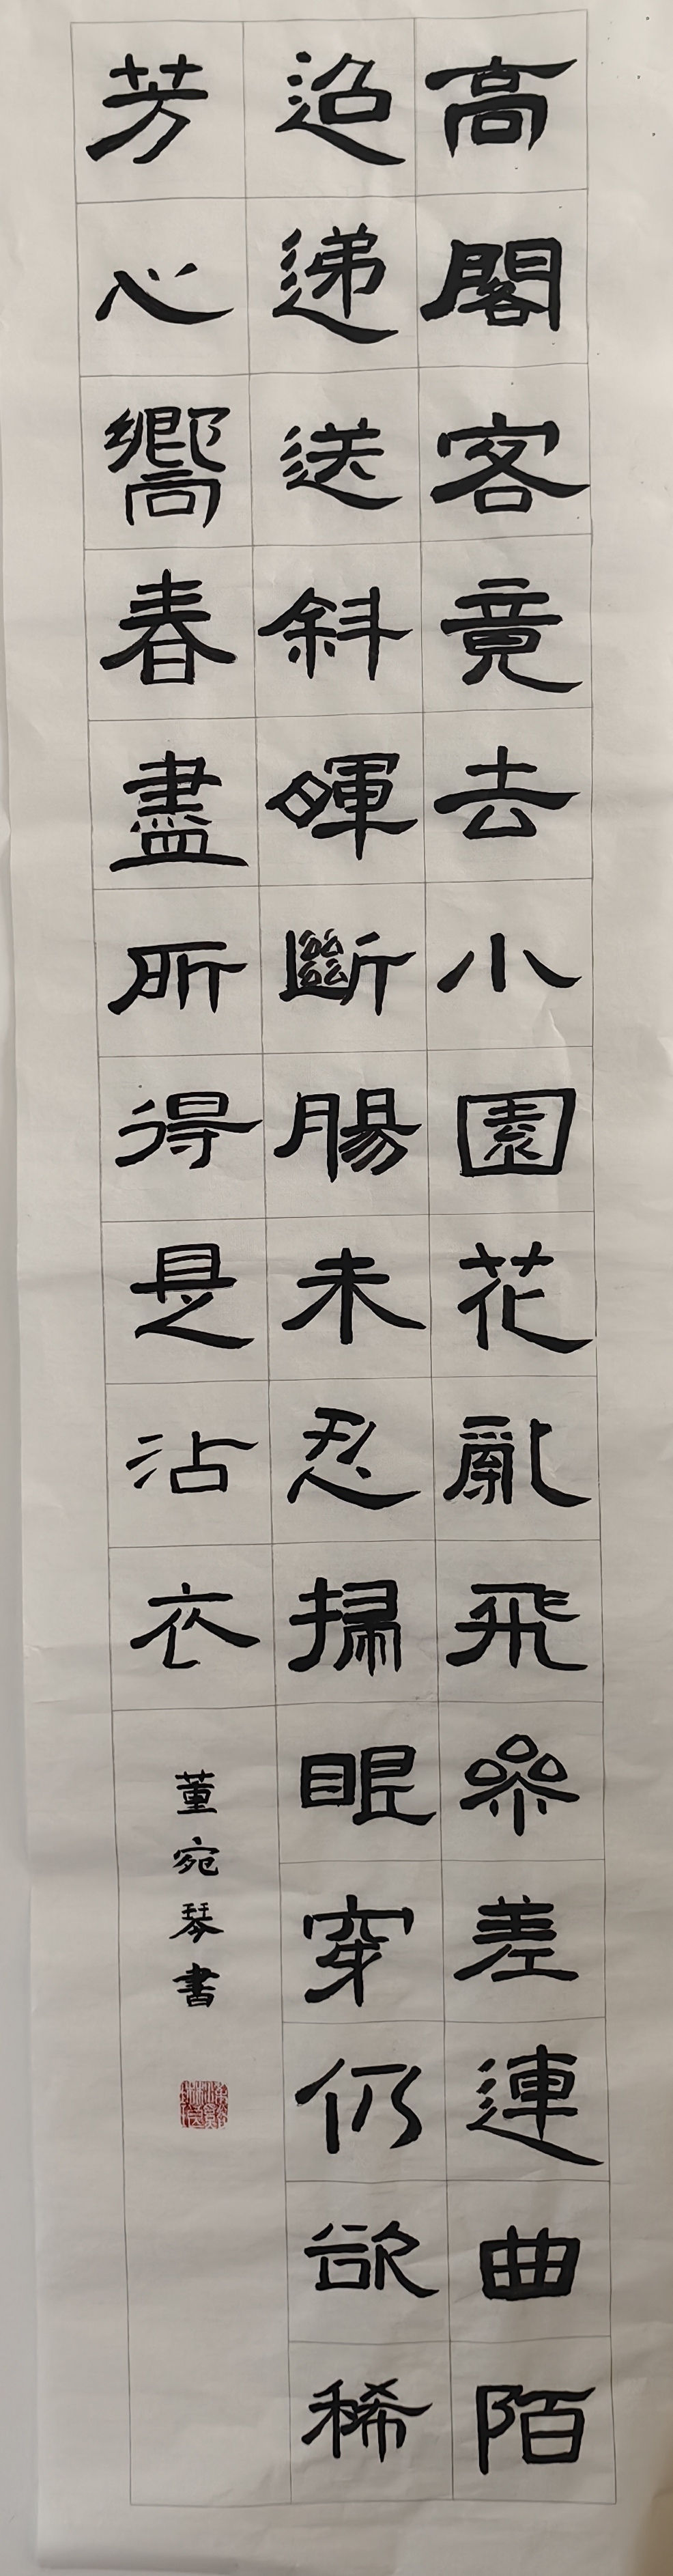 高閣客竟去小園花亂飛參差連曲陌
迢遞送斜暉斷腸未忍掃眼穿仍欲稀
芳心嚮春盡所得是沾衣
董宛琴書